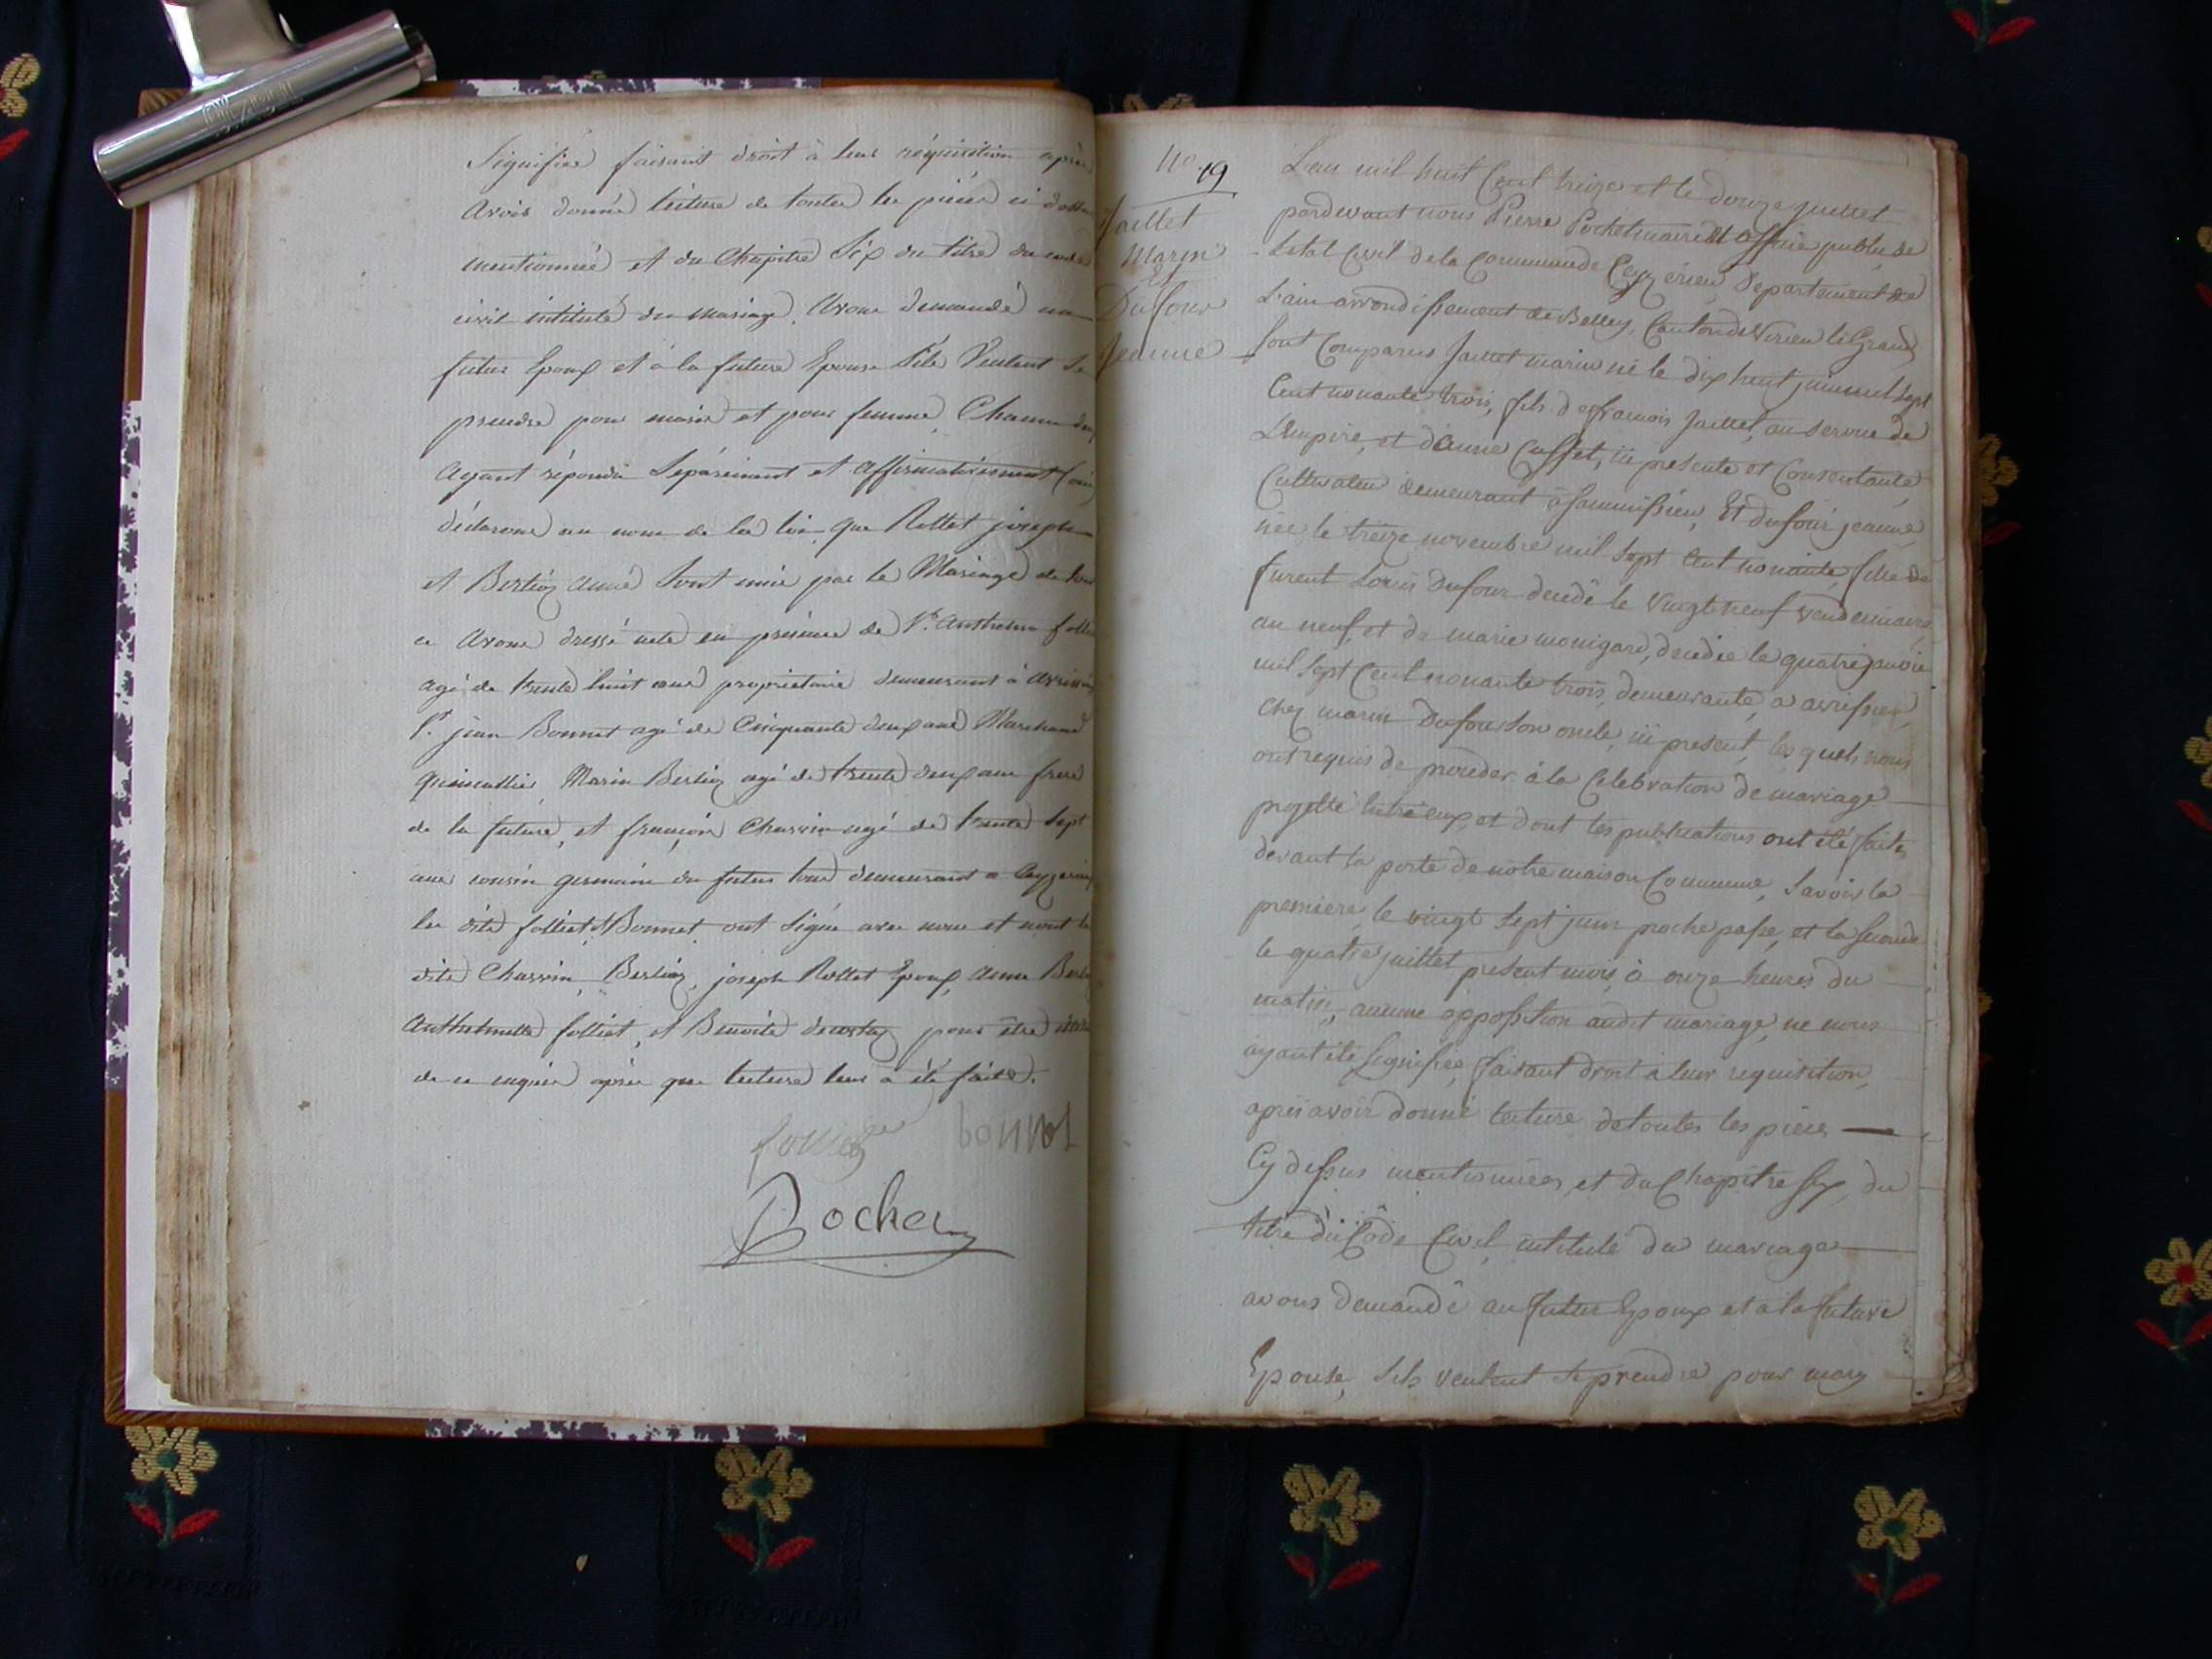 Signifiée faisant droit à leur réquisition après
Avoir donné lecture de toutes les pièces ci dessus
mentionnées et du Chapitre Six du titre du code
civil intitulé du mariage, Avons demandé au
futur Epoux et à la future Epouse s'ils Veulent se
prendre pour mari et pour femme, Chacun d'eux
Ayant répondu Séparément et Affirmativement (oui)
déclarons au nom de la loi, que Rollet joseph
et Berlioz Anne Sont unis par le Mariage de tout
ce Avons dressé acte en présence de Sr. Anthelme folliet
agé de trente huit ans propriétaire demeurant à Avrissieu
Sr. jean Bonnet agé de Cinquante deux ans Marchand
Quincallier, Marin Berlioz agé de trente deux ans frere
de la future, et françois Charvin agé de trente Sept
ans cousin germain du futur tous demeurant a Ceyzerieu
les dits folliet et Bonnet ont Signé avec nous et non les
dits Charvin, Berlioz, joseph Rollet Epoux, Anne Berlioz
Anthelmette folliet, et Benoite pour être
de ce enquis après que lecture leur a été faite.
folliet bonnet
Pochet
No. 19
Jaillet
Marin
Et
Dufour
Jeanne
L'an mil huit Cent treize et le douze juillet
pardevant nous Pierre Pochet maire et officié public de
L'état Civil de la Commune de Ceyzerieu, Departement de
L'ain arrondissement de Belley, Canton de Virieu le Grand,
Sont Comparus Jaillet marin né le dix huit juin mil Sept
Cent nonante trois, fils de francois Jaillet, au service de
L'Empire, et d'Anne Cusset, ici presente et Consentante,
Cultivateur demeurant à Sammissieu, Et dufour jeanne,
née le treize novembre mil Sept Cent nonante, fille de
furent Louis Dufour decédé le Vingt neuf Vendemiaire
an neuf, et de marie monigard, decédée le quatre janvier
mil Sept Cent nonante trois, demeurante, a avrissieu,
chez marin Dufour Son oncle, ici present, les quels nous
ont requis de proceder à la Celebration de mariage
projetté Entre eux, et dont les publications ont été faites
devant la porte de notre maison Commune, Savoir la
premiere, le vingt Sept juin proche passé, et la Seconde
le quatre juillet present mois, à onze heures du
matin, aucune opposition audit mariage, ne nous
ayant été Signifiée, faisant droit à leur requisition,
après avoir donné lecture de toutes les pièces
Cy dessus mentionnées, et du Chapitre Six, du
titre du Côde Civil, intitulé du mariage
avons demandé au futur Epoux et à la future
Epouse, S'ils veulent se prendre pour mary